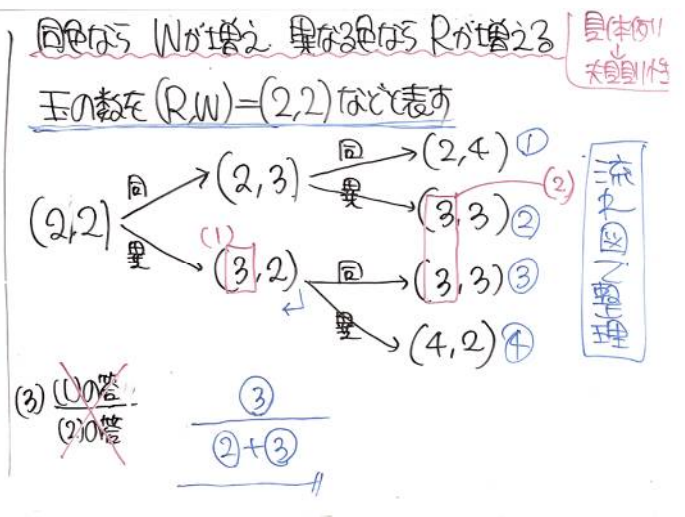 同色なら Wが増え 異なる色なら Rが増える
具体例
↓
規則性
玉の数を(R,W)=(2,2)などと表す
(2,2)
同
異
(2,3)
(1)
(3,2)
同
異
同
異
(2,4)①
(3,3)②
(3,3)③
(4,2)④
(2)
流れ図で整理
(3) (1)の答
(2)の答
③
②+③